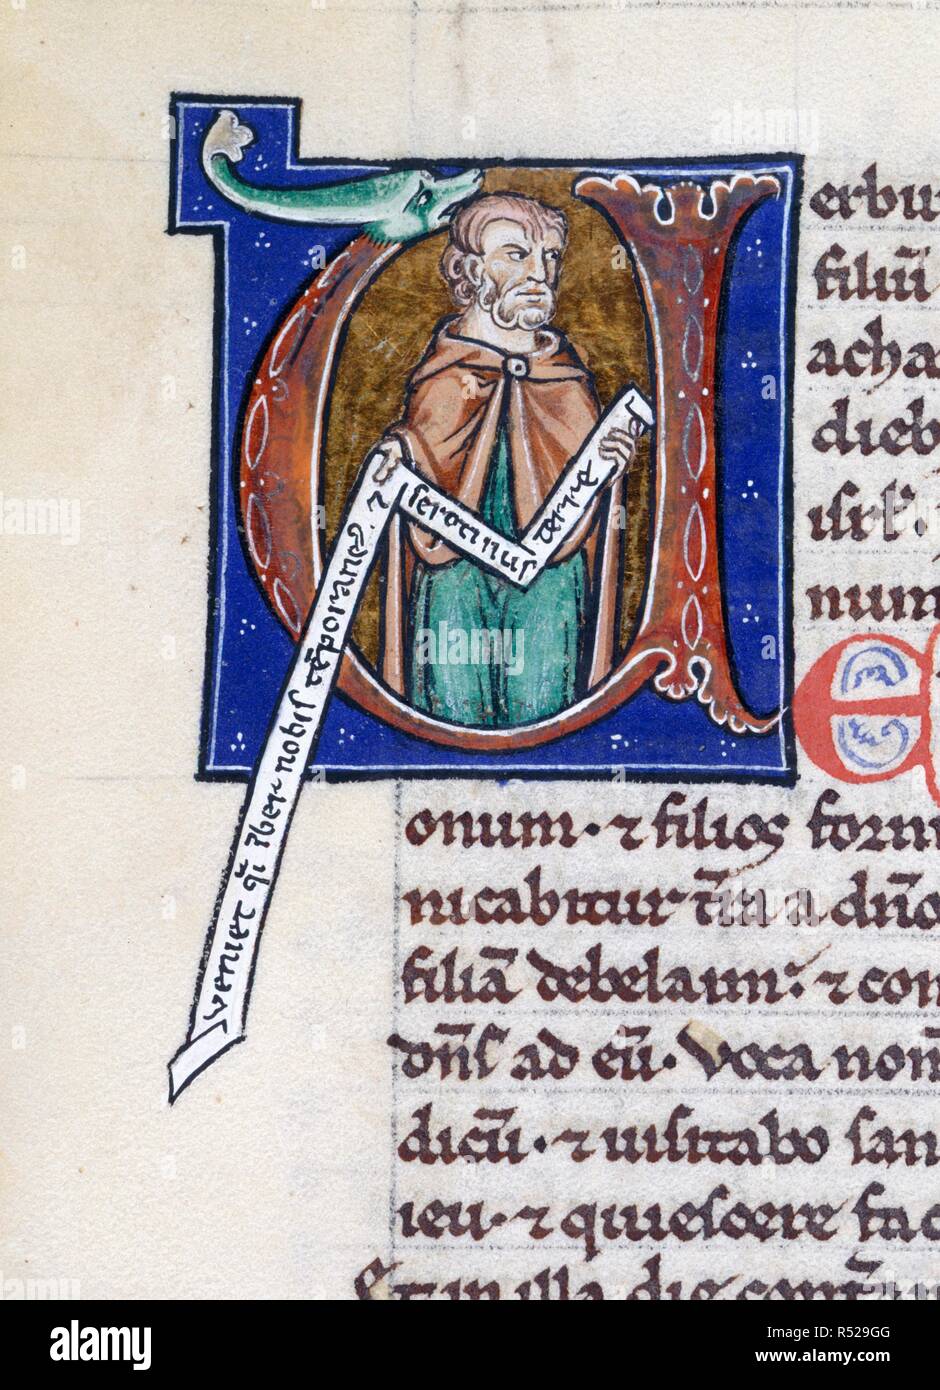 erbu
filiū
acha
dieb
isrł.
num
veniet qͥ imber nobis tēporane᷒ . ⁊
serotinus
terre
onum · ⁊ filios forni
nicabitur t̄ra a dn̄o
filiā debelaim: ⁊ con
dn̄s ad eū. Voca nom̄
dicū · ⁊ uisitabo san
ieu · ⁊ quiescere fac
Et in illa die
alamy
Image ID: R529GG
www.alamy.com